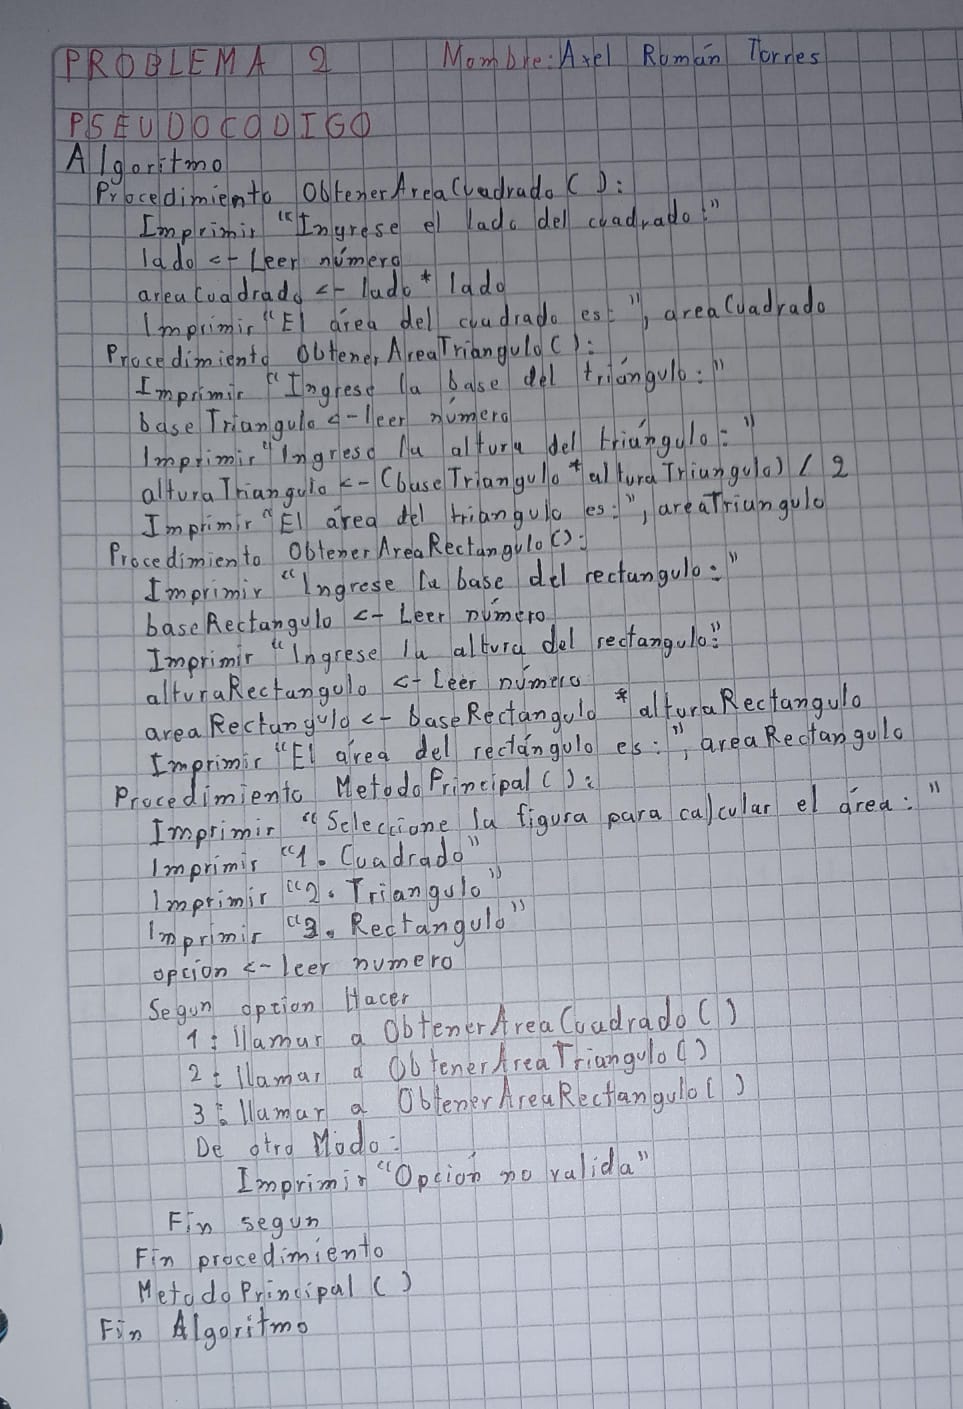 PROBLEMA 2 Nombre: Axel Román Torres
PSEUDOCODIGO
Algoritmo
Procedimiento ObtenerAreaCuadrado ( ):
Imprimir "Ingrese el lado del cuadrado:"
lado <- Leer número
areaCuadrado <- lado * lado
Imprimir "El área del cuadrado es:", areaCuadrado
Procedimiento ObtenerAreaTriangulo( ):
Imprimir "Ingrese la base del triángulo:"
baseTriangulo <- leer número
Imprimir "Ingrese la altura del triángulo:"
alturaTriangulo <- (baseTriangulo * alturaTriangulo) / 2
Imprimir "El área del triangulo es:", areaTriangulo
Procedimiento ObtenerAreaRectangulo():
Imprimir "Ingrese la base del rectangulo:"
baseRectangulo <- Leer número
Imprimir "Ingrese la altura del rectangulo:"
alturaRectangulo <- Leer número
areaRectangulo <- baseRectangulo * alturaRectangulo
Imprimir "El área del rectángulo es:", areaRectangulo
Procedimiento MetodoPrincipal ( ):
Imprimir "Seleccione la figura para calcular el área:"
Imprimir "1. Cuadrado"
Imprimir "2. Triangulo"
Imprimir "3. Rectangulo"
opcion <- leer numero
Segun opcion Hacer
1: llamar a ObtenerAreaCuadrado ( )
2: llamar a ObtenerAreaTriangulo ( )
3: llamar a ObtenerAreaRectangulo ( )
De otro Modo:
Imprimir "Opción no valida"
Fin segun
Fin procedimiento
MetodoPrincipal ( )
Fin Algoritmo